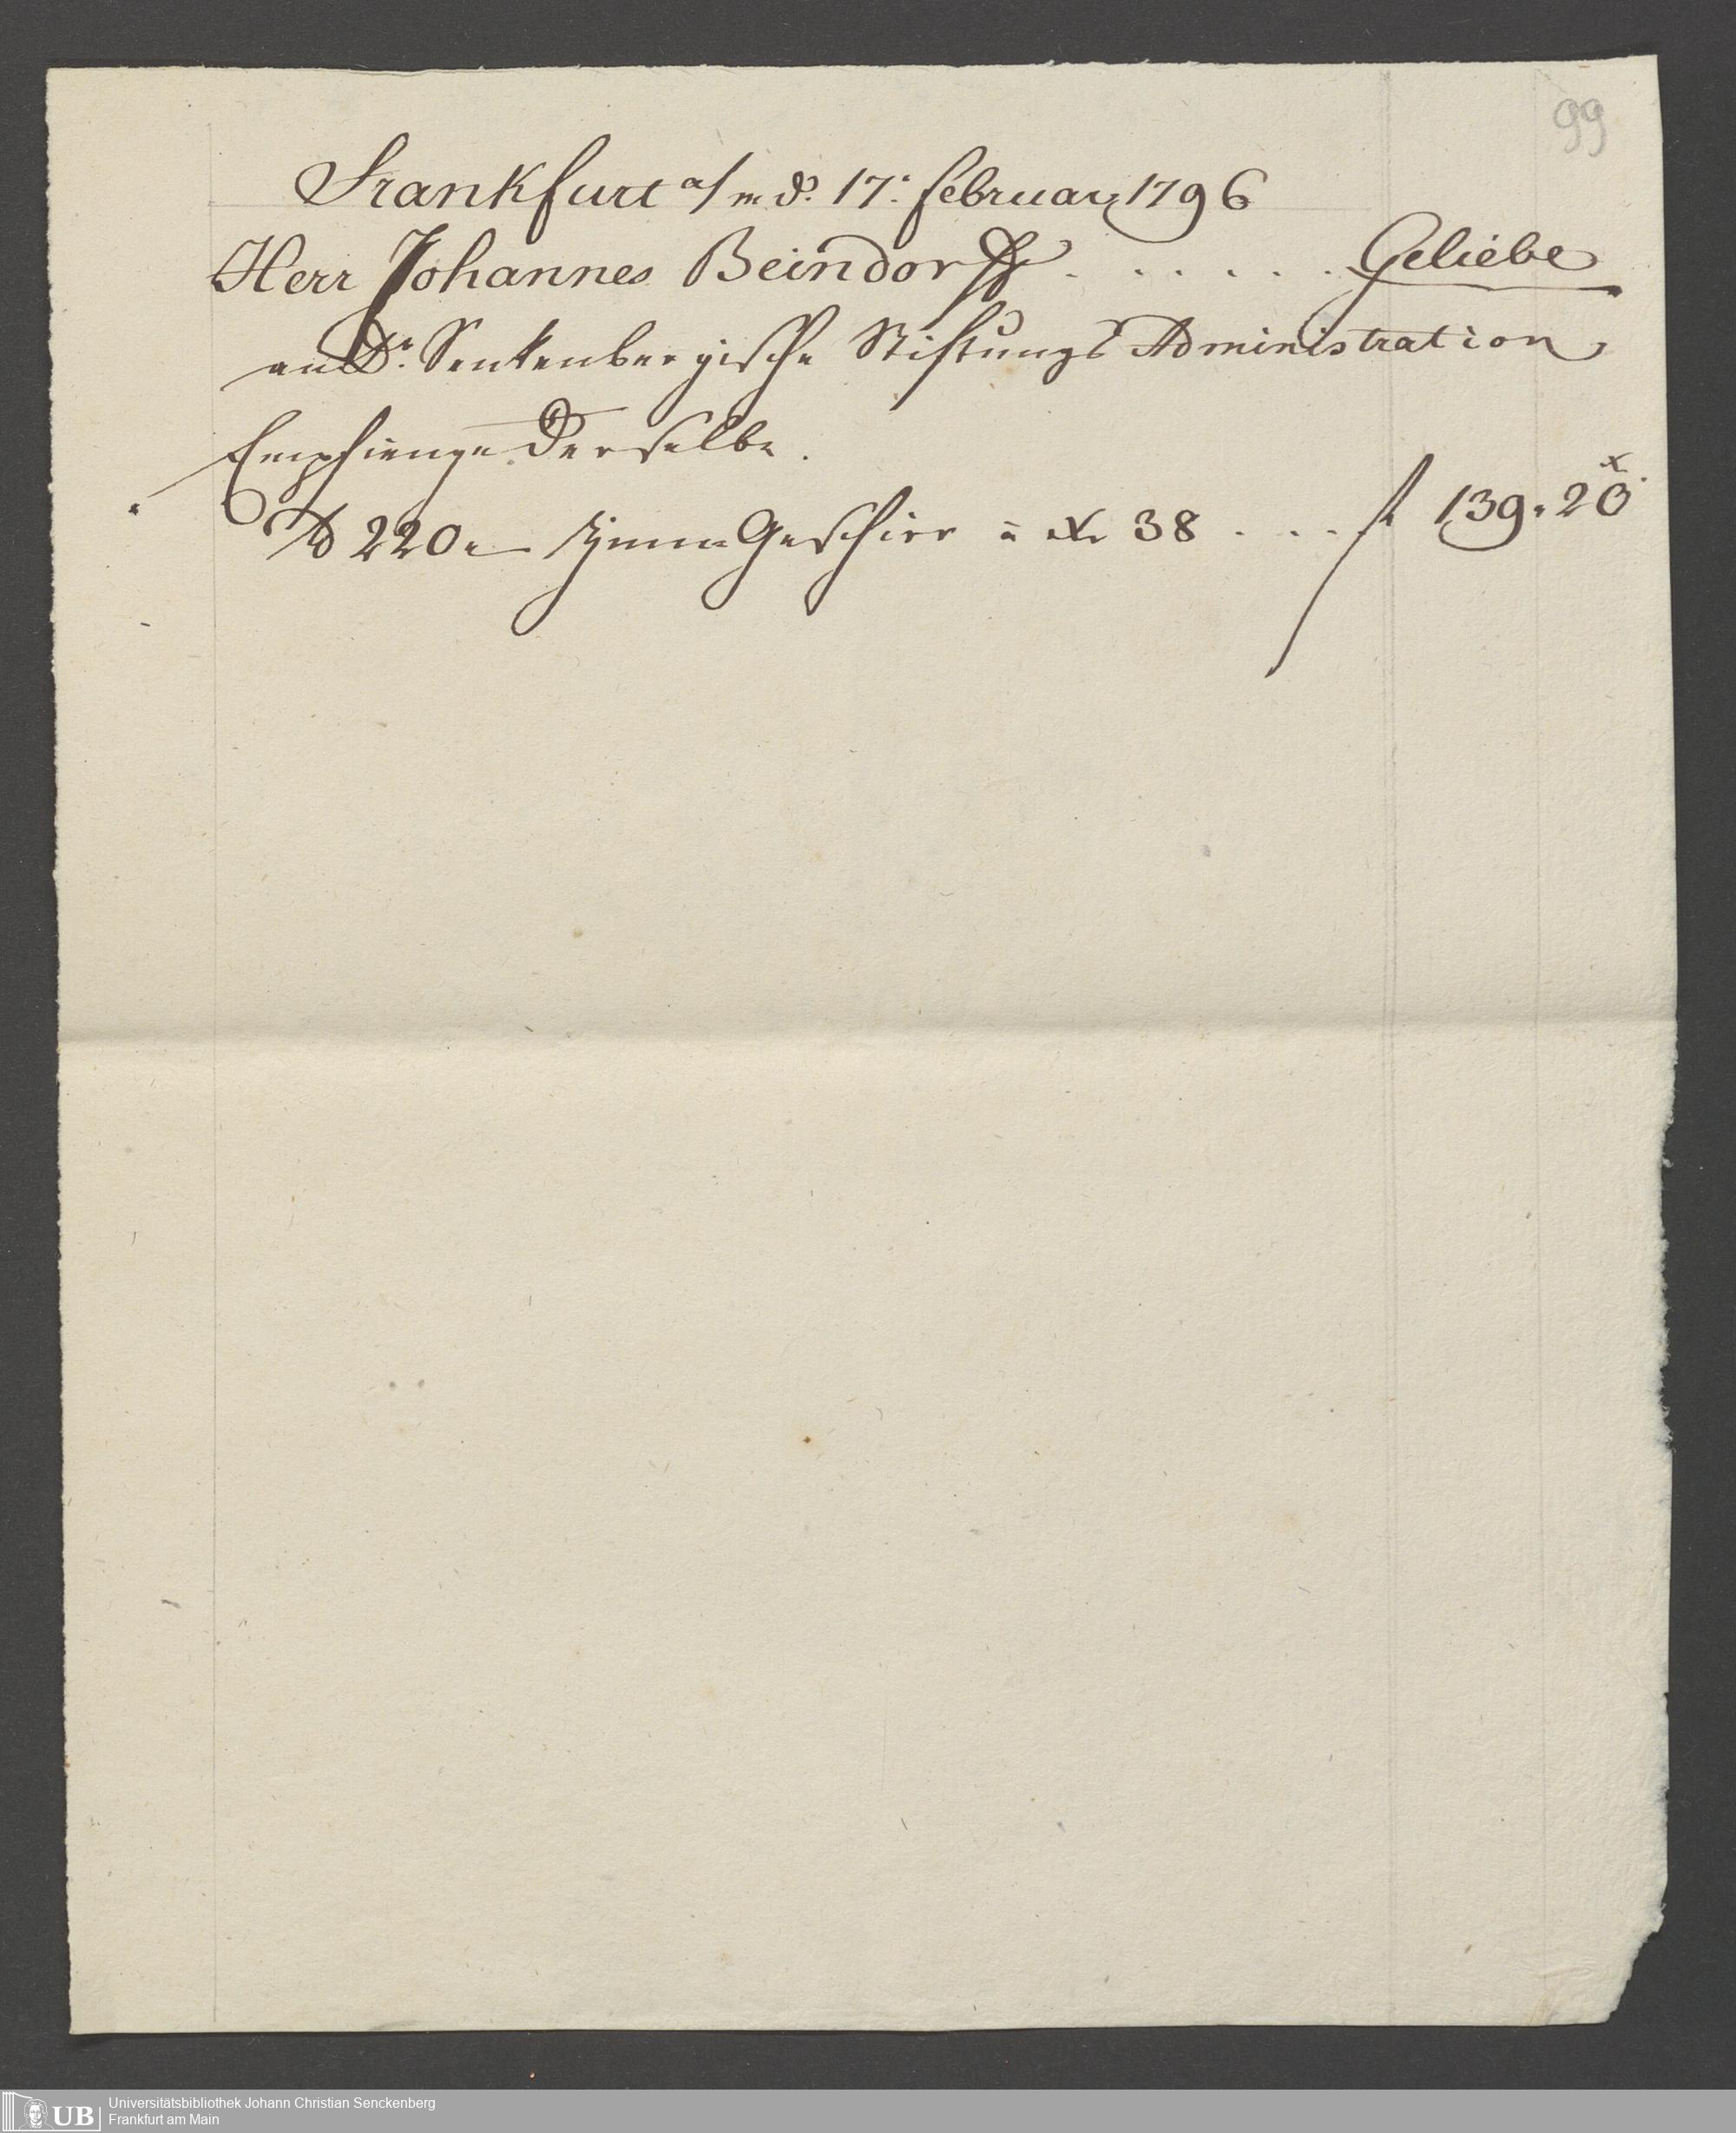 99
Frankfurt a/m d. 17. februar, 1796
Herr Johannes Beindorff . . . . . . Geliebe
an Dr. Senkenbergische Stiftungs Administration
Empfienge Derselbe.
℔ 220 Geschirr a Xr 38 . . . f 139 . 20 x
Universitätsbibliothek Johann Christian Senckenberg
UB Frankfurt am Main